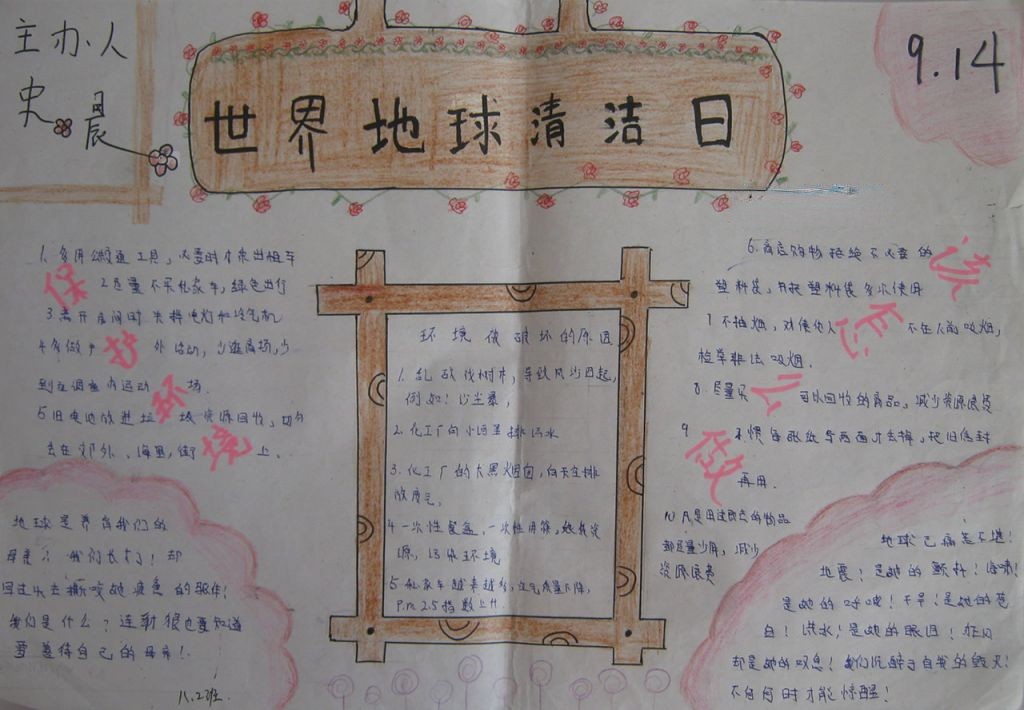 主办人
史晨
世界地球清洁日
9.14
保护环境
1.多用公交通工具，必要时才乘出租车
2尽量不买私家车，绿色出行
3.离开房间时关掉电灯和冷气机
4多做户外活动，少逛商场，少
到在调温的运动场.
5旧电池放进垃圾资源回收，切勿
丢在郊外、海里，街上.
地球是养育我们的
母亲！我们长大了！却
回过头去撕咬她疲惫的躯体！
我们是什么？连勒狼也要知道
要善待自己的母亲！.
八.2班.
环境被破坏的原因
1.乱砍伐树木，导致风沙四起，
例如：沙尘暴，
2.化工厂向小河里排污水
3.化工厂的大黑烟囱，向天空排
放废气.
4一次性餐盒、一次性用筷，越我资
源，污染环境
5私家车越来越多，空气质量下降，
P.m 2.5指数上升.
该怎么做
6.商店购物拒绝不必要的
塑料袋，并把塑料袋多次使用
7不抽烟，对使他人不在人前吸烟，
检举非法吸烟.
8.尽量买可以回收的商品，减少资源浪费
9.习惯每张纸写两面才丢掉，把旧信封
再用.
10凡是用过即丢的物品
都尽量少用，减少
资源浪费
地球已痛苦不堪！
地震！是她的颤抖！海啸！
是她的呼唤！干旱！是她的苍
白！洪水！是她的眼泪！狂风
却是她的叹息！我们沉醉于自我的毁灭！
不知何时才能惊醒！